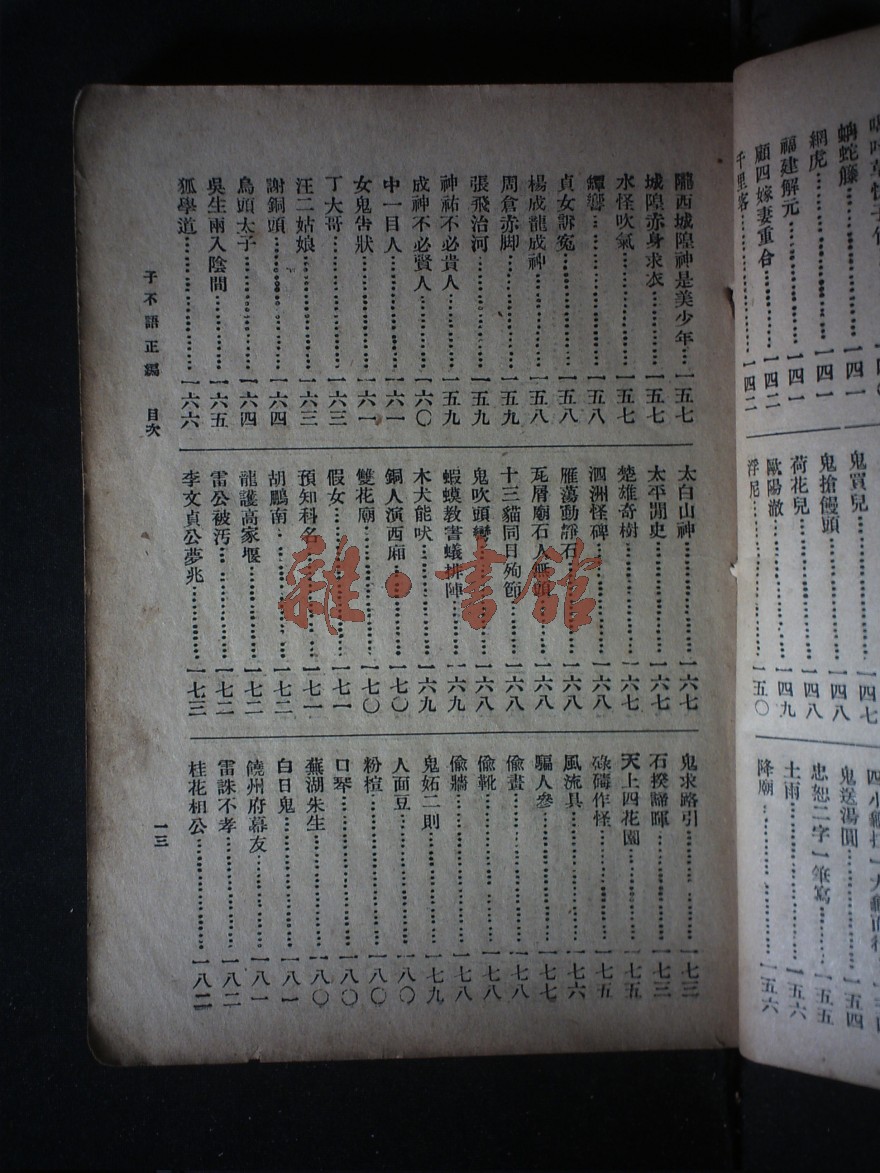 蚺蛇藤………一四一
網虎………一四一
福建解元………一四一
顧四嫁妻重合………一四二
千里客………一四二
鬼買兒………一四七
鬼搶饅頭………一四八
荷花兒………一四八
歐陽澈………一四九
浮尼………一五〇
鬼送湯圓………一五四
忠恕二字一筆寫………一五五
土雨………一五六
降廟………一五六
隴西城隍神是美少年…一五七
城隍赤身求衣………一五七
水怪吹氣………一五七
罈響………一五八
貞女訴冤………一五八
楊成龍成神………一五八
周倉赤脚………一五九
張飛治河………一五九
神祐不必貴人………一五九
成神不必賢人………一六〇
中一目人………一六一
女鬼告狀………一六一
丁大哥………一六三
汪二姑娘………一六三
謝銅頭………一六四
鳥頭太子………一六四
吳生兩入陰間………一六五
狐學道………一六六
太白山神………一六七
太平閒史………一六七
楚雄奇樹………一六七
泗洲怪碑………一六八
雁蕩動靜石………一六八
瓦屑廟石人無頭………一六八
十三貓同日殉節………一六八
鬼吹頭彎………一六八
蝦蟆教書蟻排陣………一六九
木犬能吠………一六九
銅人演西廂………一七〇
雙花廟………一七〇
假女………一七一
預知科名………一七一
胡鵬南………一七二
龍護高家堰………一七二
雷公被汚………一七二
李文貞公夢兆………一七三
鬼求路引………一七三
石揆諦暉………一七三
天上四花園………一七五
碌碡作怪………一七五
風流具………一七六
騙人參………一七七
偸畫………一七八
偸靴………一七八
偸牆………一七八
鬼妬二則………一七九
人面豆………一八〇
粉楦………一八〇
口琴………一八〇
蕪湖朱生………一八〇
白日鬼………一八一
饒州府幕友………一八一
雷誅不孝………一八二
桂花相公………一八二
子不語正編　目次
一三
雜·書館